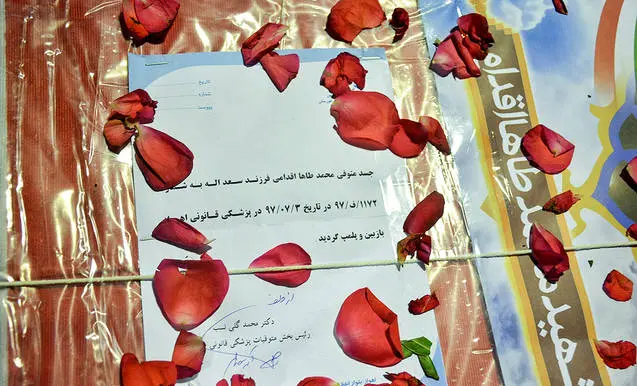 تاریخ
شماره
پیوست
جسد متوفی محمد طاها اقدامی فرزند سعد اله به
۱۱۷۲/ف/۹۷ در تاریخ ۹۷/۰۷/۳ در پزشکی قانونی
بازبین و پلمپ گردید
از طرف
دکتر محمد گلی نسب
رئیس بخش متوفیات پزشکی قانونی
اهواز بلوار
شهید محمد طاها اقدامی